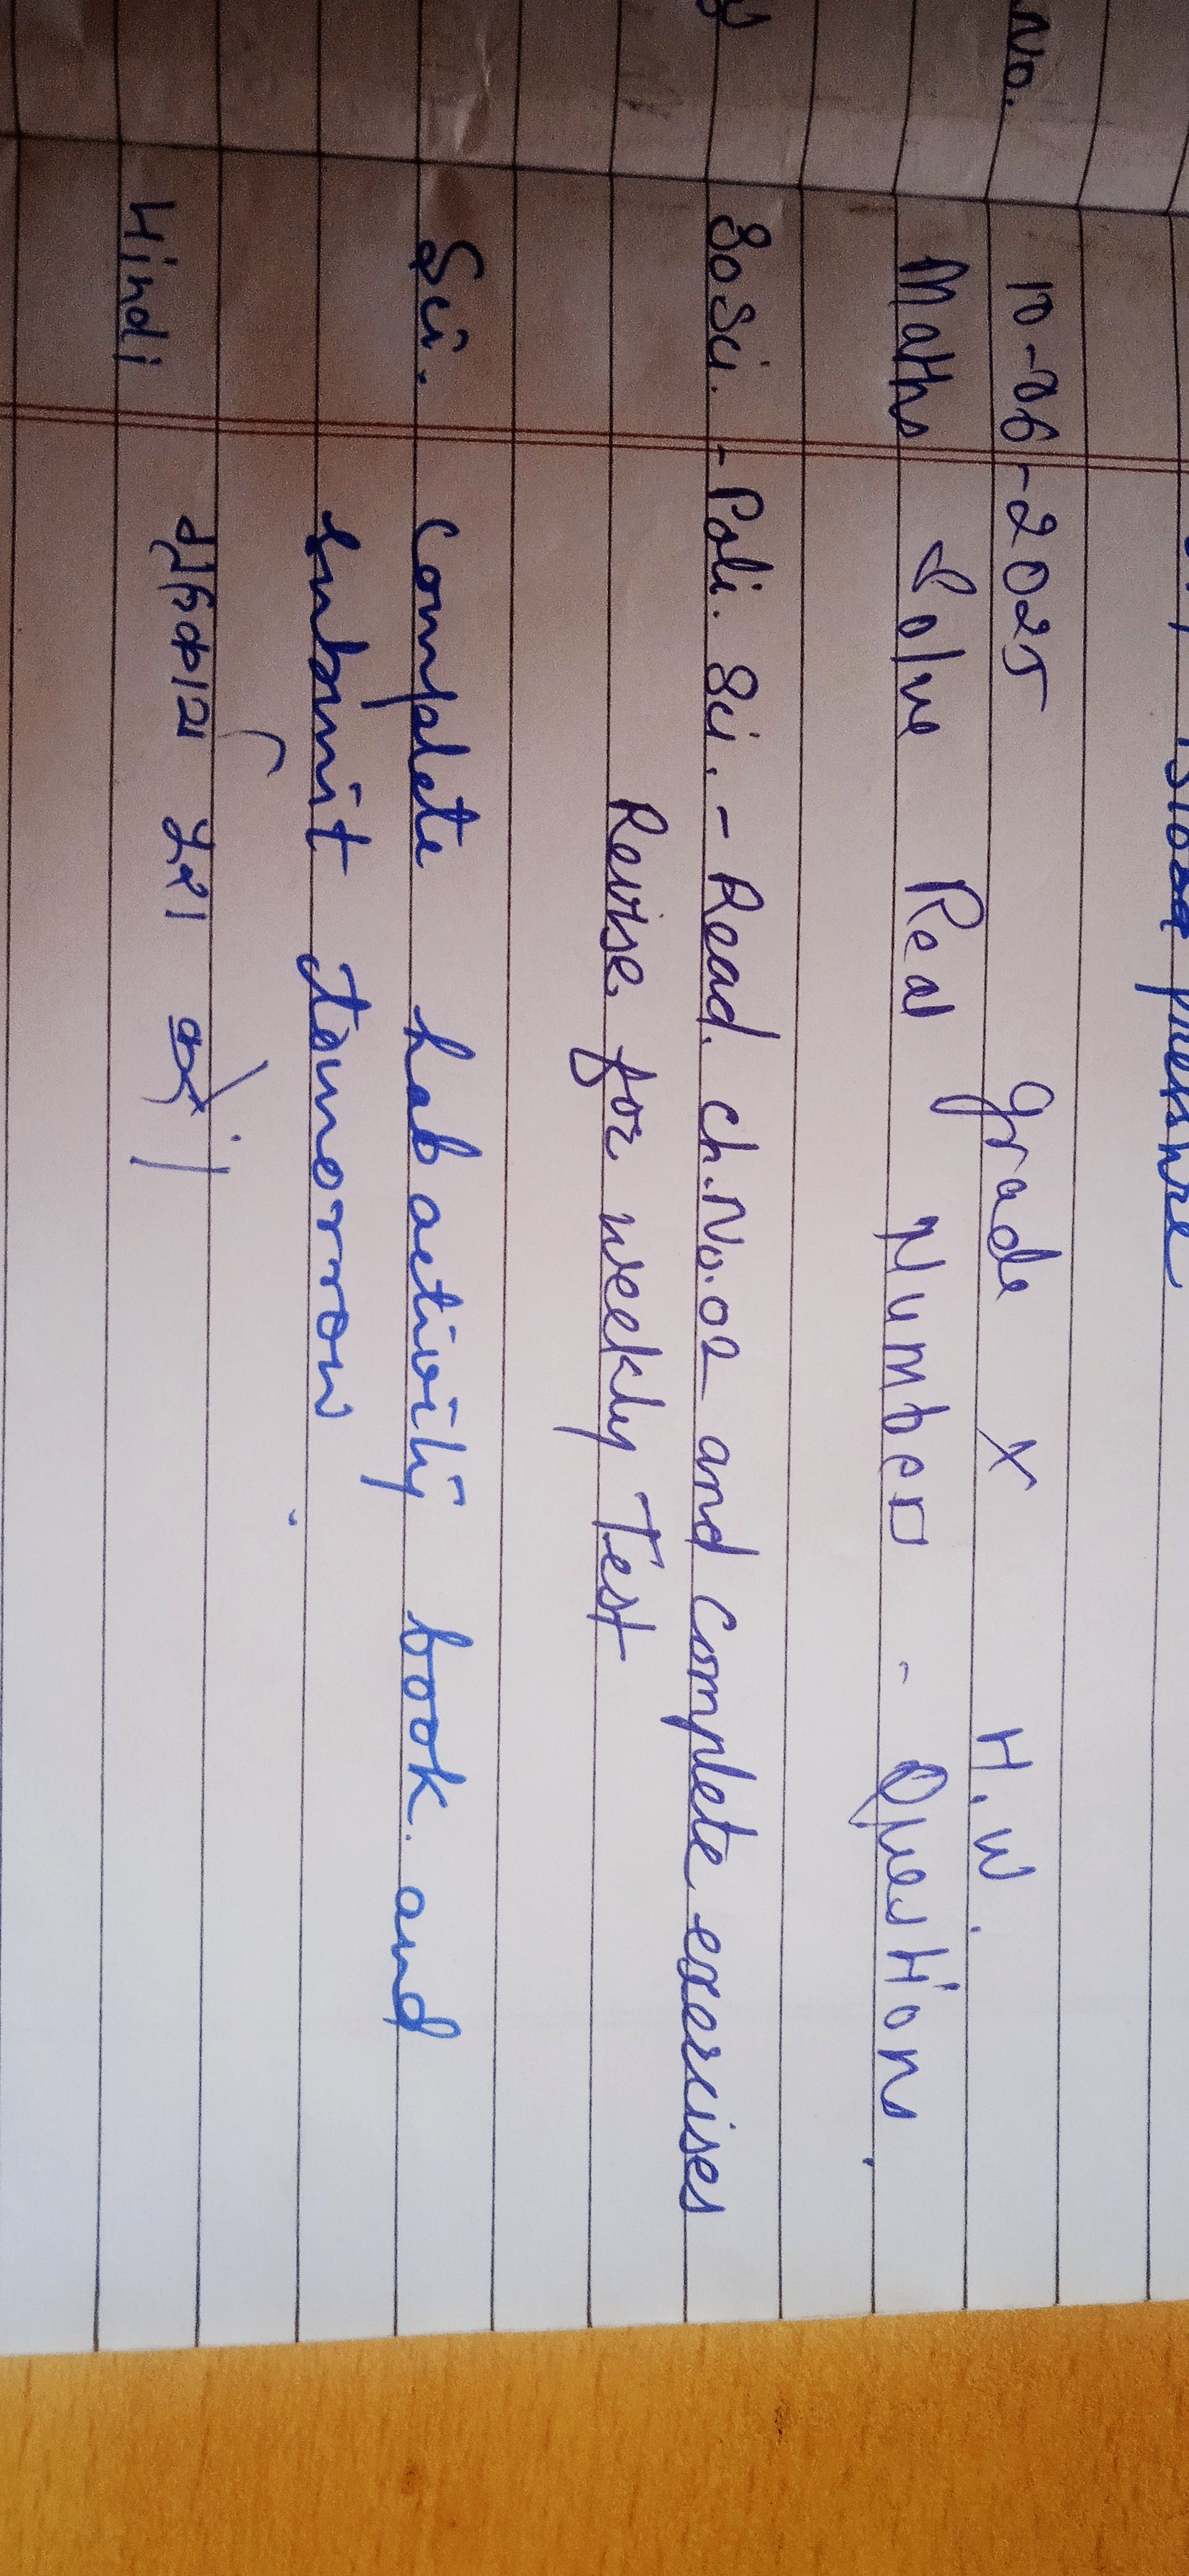 No.
Blood pressure
10-06-2025 Grade X H.W.
Maths Solve Real Number - Question.
SoSci. - Poli. Sci. - Read ch.No.02 and complete exercises
Revise for weekly Test
Sci. complete Lab activity book and
submit tomorrow
Hindi गृहकार्य पूरा करें।